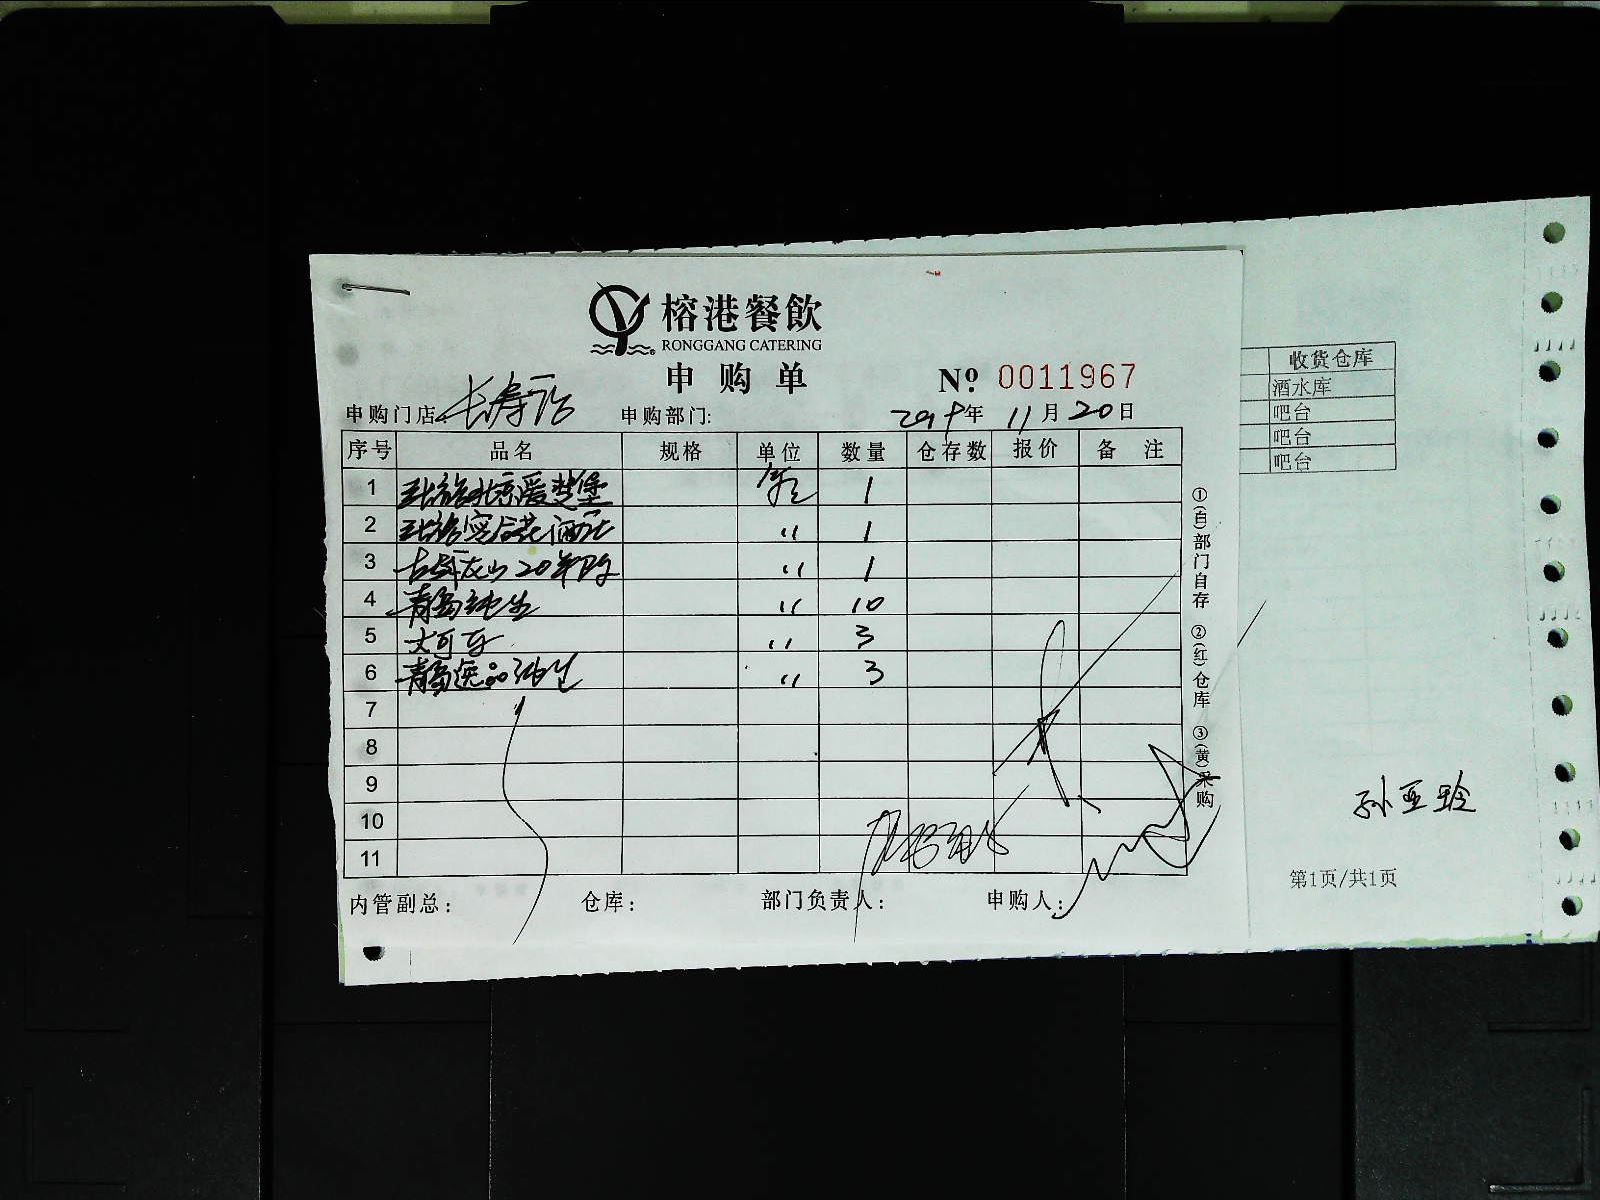 榕港餐飲
RONGGANG CATERING
申购单 Nº 0011967
申购门店: 长寿店 申购部门: 2019年 11月20日
序号 品名 规格 单位 数量 仓存数 报价 备注
1 张裕北京爱斐堡 箱 1
2 张裕 酒庄 〃 1
3 20年 〃 1
4 青岛纯生 〃 10
5 大可乐 〃 3
6 青岛逸品纯生 〃 3
7
8
9
10
11
内管副总: 仓库: 部门负责人: 申购人:
①(白)部门自存 ②(红)仓库 ③(黄)采购
收货仓库
酒水库
吧台
吧台
吧台
孙亚玲
第1页/共1页